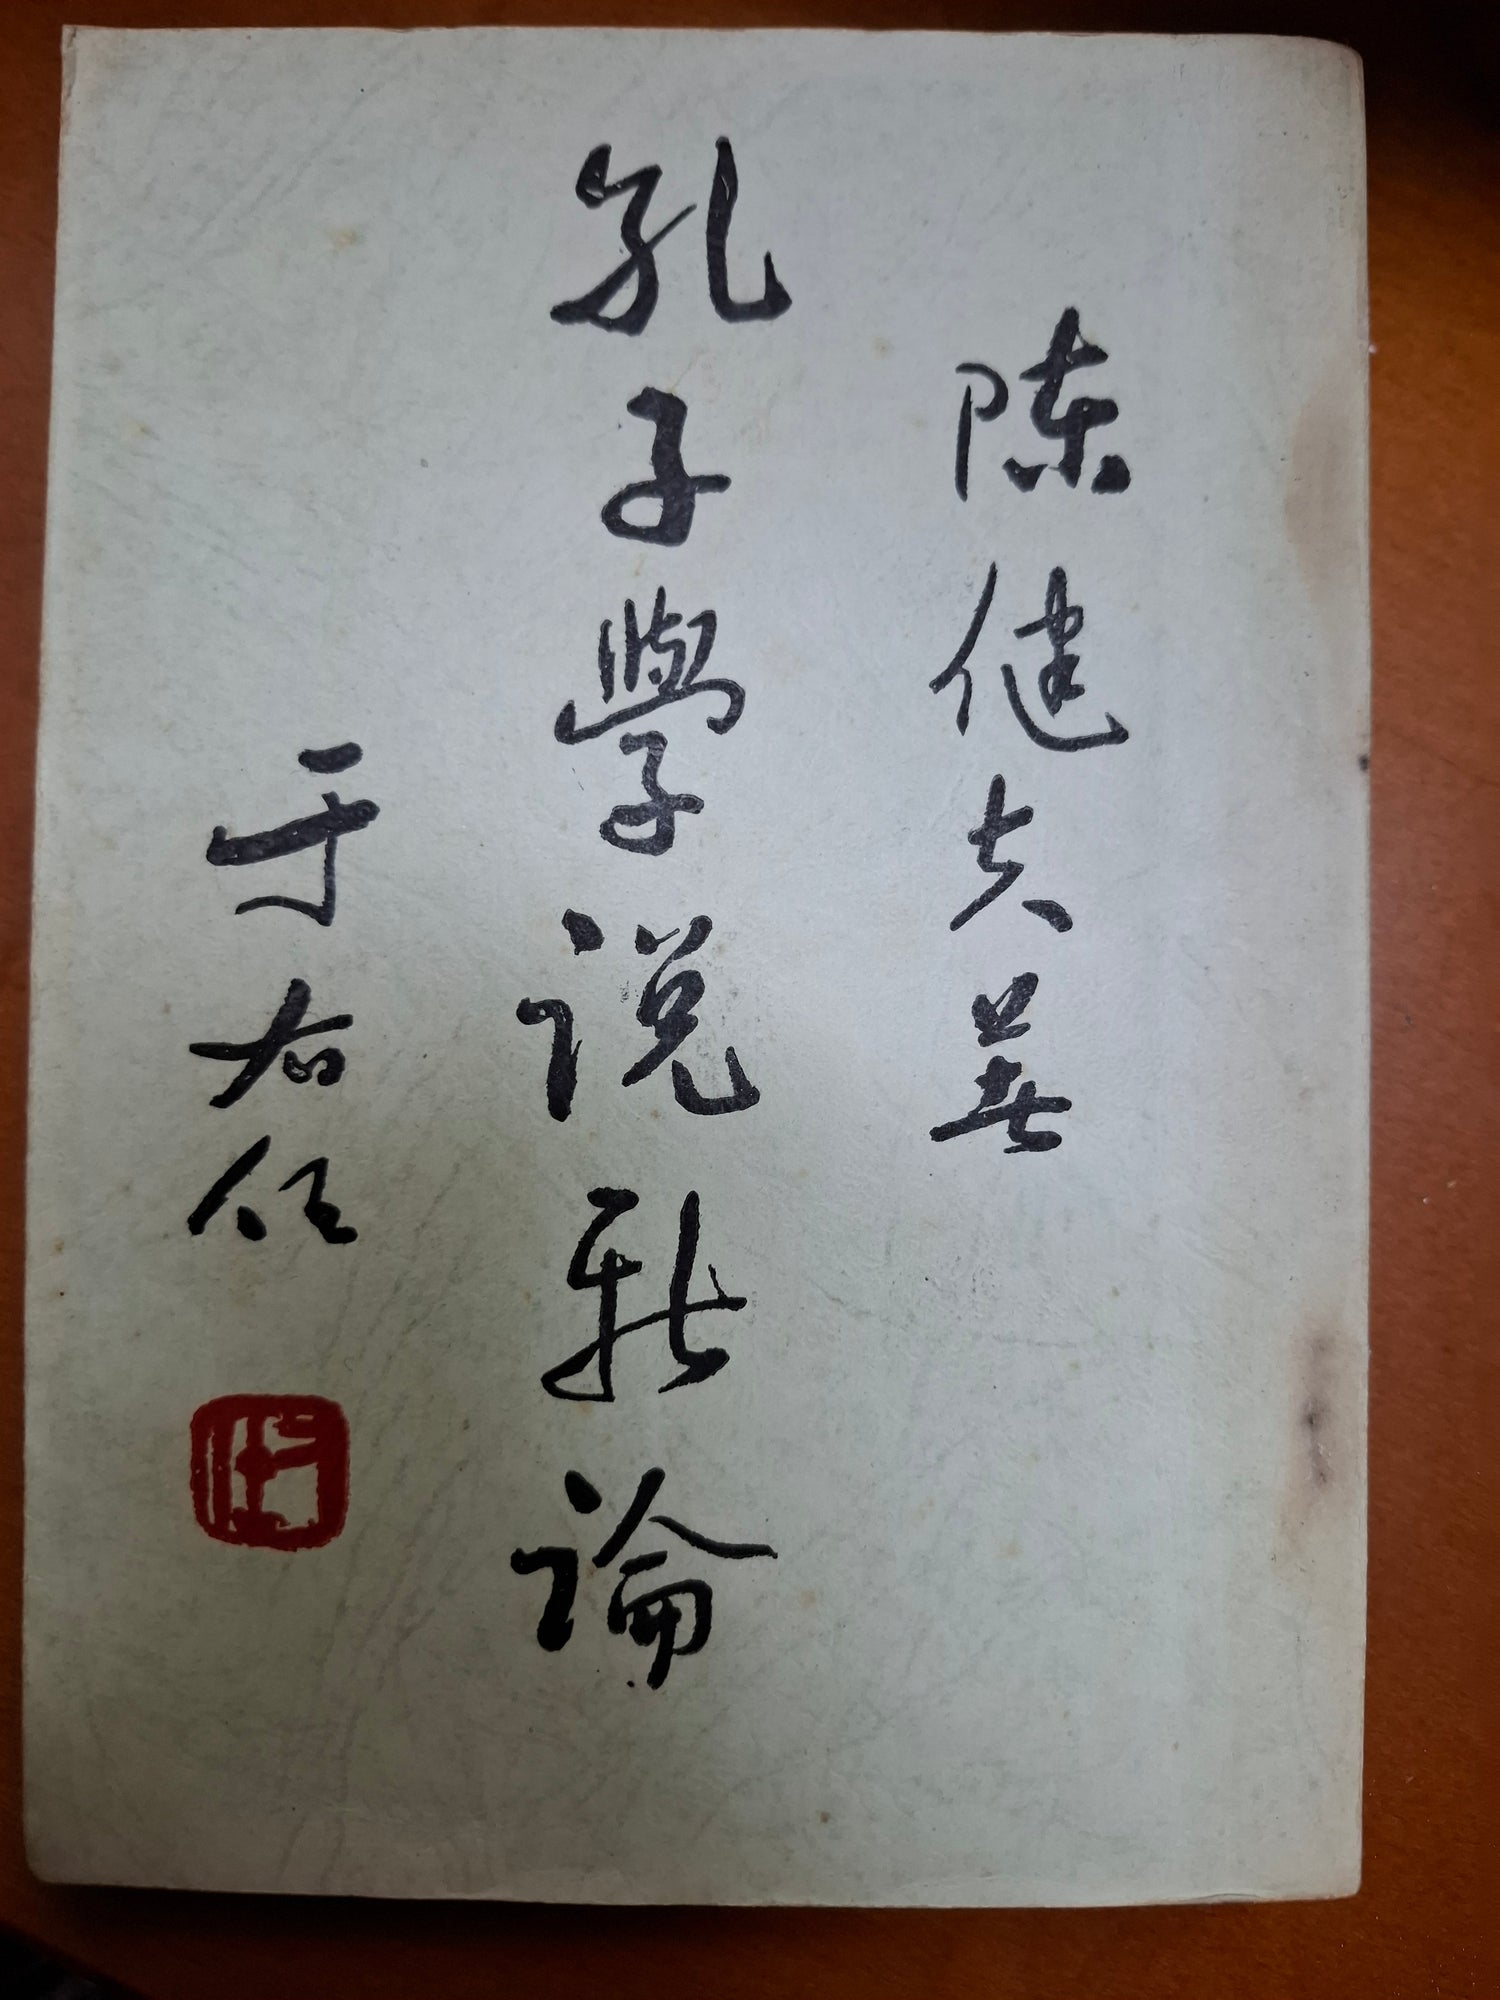 陳健夫著
孔子學說新論
于右任